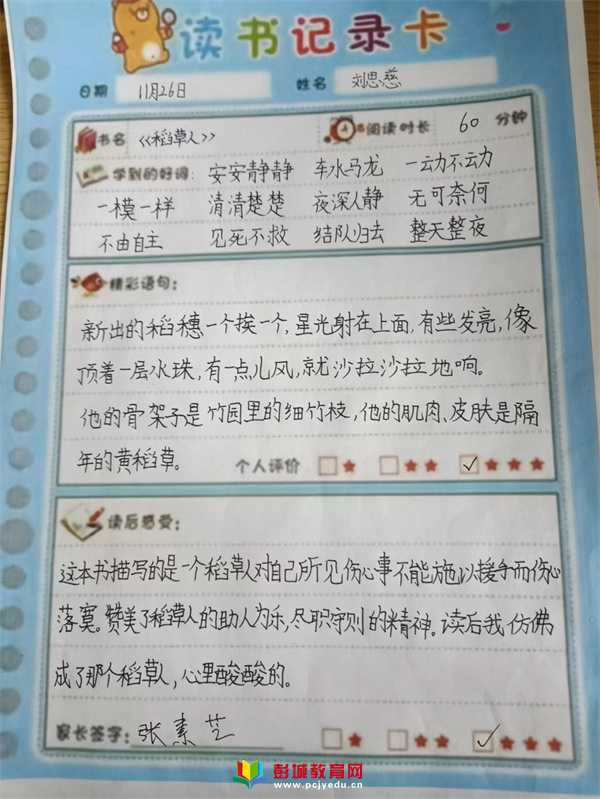 读书记录卡
日期 11月26日 姓名 刘思慈
书名 《稻草人》 阅读时长 60 分钟
学到的好词: 安安静静 车水马龙 一动不动
一模一样 清清楚楚 夜深人静 无可奈何
不由自主 见死不救 结队归去 整天整夜
精彩语句:
新出的稻穗一个挨一个,星光射在上面,有些发亮,像
顶着一层水珠,有一点儿风,就沙拉沙拉地响。
他的骨架子是竹园里的细竹枝,他的肌肉、皮肤是隔
年的黄稻草。 个人评价
读后感受:
这本书描写的是一个稻草人对自己所见伤心事不能施以援手而伤心
落寞。赞美了稻草人的助人为乐,尽职守则的精神。读后我仿佛
成了那个稻草人,心里酸酸的。
家长签字: 张素芝
彭城教育网
www.pcjyedu.cn